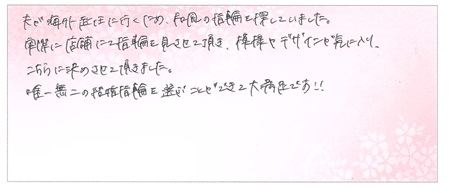 夫が海外赴任に行くため、和風の指輪を探していました。
実際に店舗にて指輪を見させて頂き、模様やデザインが気に入り、
こちらに決めさせて頂きました。
唯一無二の結婚指輪を選ぶことができて大満足です!!